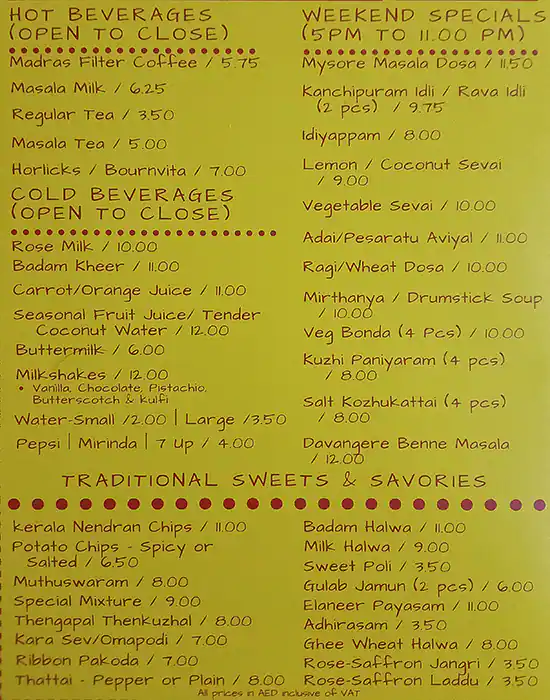 HOT BEVERAGES
(OPEN TO CLOSE)
Madras Filter Coffee / 5.75
Masala Milk / 6.25
Regular Tea / 3.50
Masala Tea / 5.00
Horlicks / Bournvita / 7.00
COLD BEVERAGES
(OPEN TO CLOSE)
Rose Milk / 10.00
Badam Kheer / 11.00
Carrot/Orange Juice / 11.00
Seasonal Fruit Juice/ Tender
Coconut Water / 12.00
Buttermilk / 6.00
Milkshakes / 12.00
• Vanilla, Chocolate, Pistachio,
Butterscotch & Kulfi
Water-Small /2.00 | Large /3.50
Pepsi | Mirinda | 7 Up / 4.00
WEEKEND SPECIALS
(5PM TO 11.00 PM)
Mysore Masala Dosa / 11.50
Kanchipuram Idli / Rava Idli
(2 pcs) / 9.75
Idiyappam / 8.00
Lemon / Coconut Sevai
/ 9.00
Vegetable Sevai / 10.00
Adai/Pesaratu Aviyal / 11.00
Ragi/Wheat Dosa / 10.00
Mirthanya / Drumstick Soup
/ 10.00
Veg Bonda (4 Pcs) / 10.00
Kuzhi Paniyaram (4 pcs)
/ 8.00
Salt Kozhukattai (4 pcs)
/ 8.00
Davangere Benne Masala
/ 12.00
TRADITIONAL SWEETS & SAVORIES
Kerala Nendran Chips / 11.00
Potato Chips - Spicy or
Salted / 6.50
Muthuswaram / 8.00
Special Mixture / 9.00
Thengapal Thenkuzhal / 8.00
Kara Sev/Omapodi / 7.00
Ribbon Pakoda / 7.00
Thattai - Pepper or Plain / 8.00
Badam Halwa / 11.00
Milk Halwa / 9.00
Sweet Poli / 3.50
Gulab Jamun (2 pcs) / 6.00
Elaneer Payasam / 11.00
Adhirasam / 3.50
Ghee Wheat Halwa / 8.00
Rose-Saffron Jangri / 3.50
Rose-Saffron Laddu / 3.50
All prices in AED inclusive of VAT